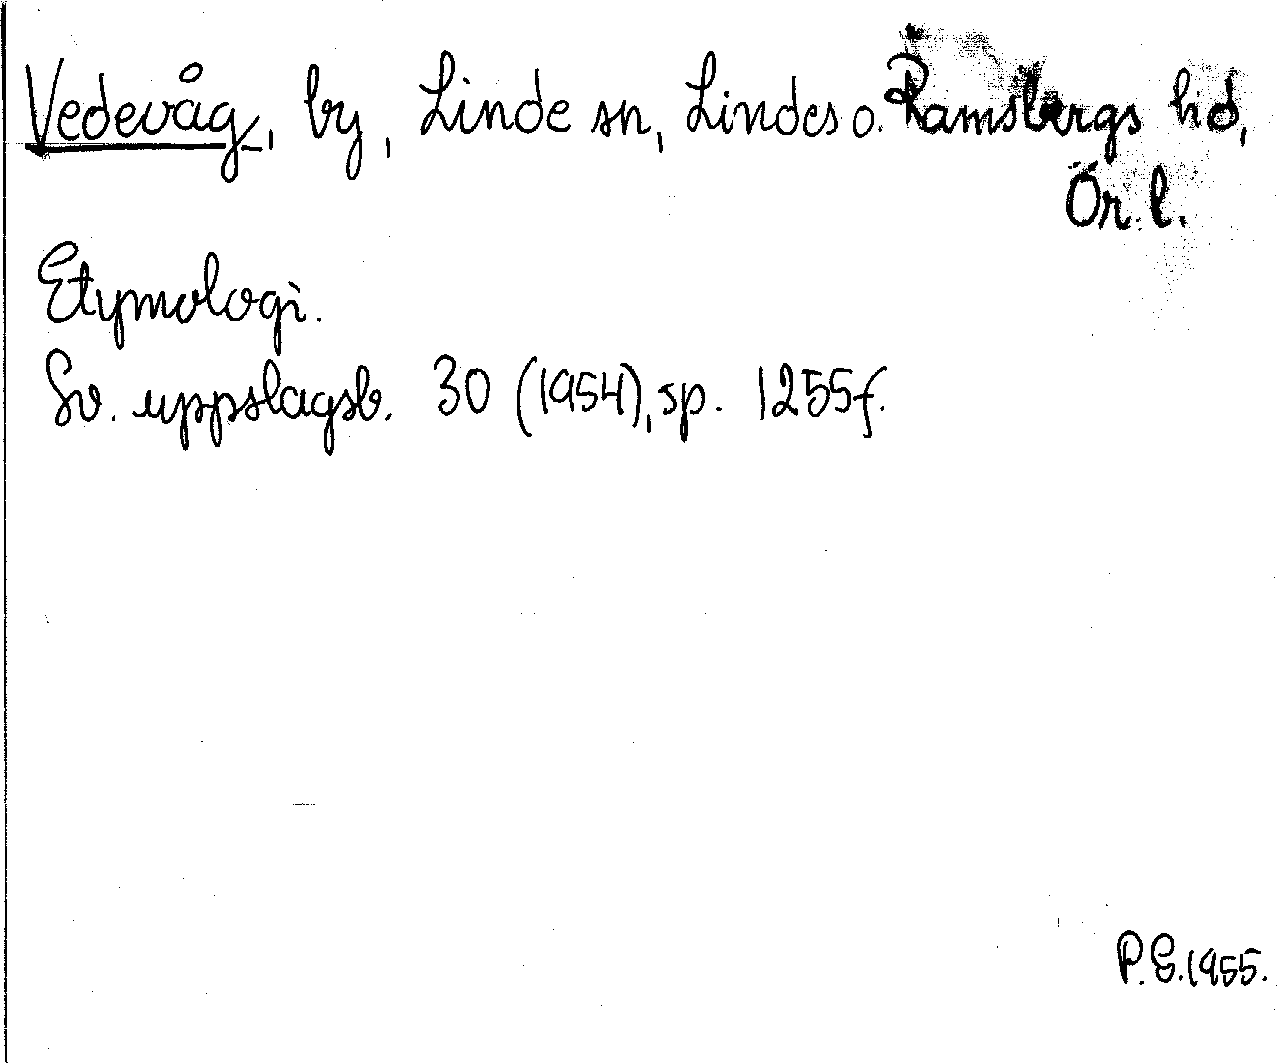 Vedevåg, by, Linde sn, Lindes o. Ramsbergs hd,
Ör. l.
Etymologi.
Sv. uppslagsb. 30 (1954), sp. 1255f.
P.E. 1955.